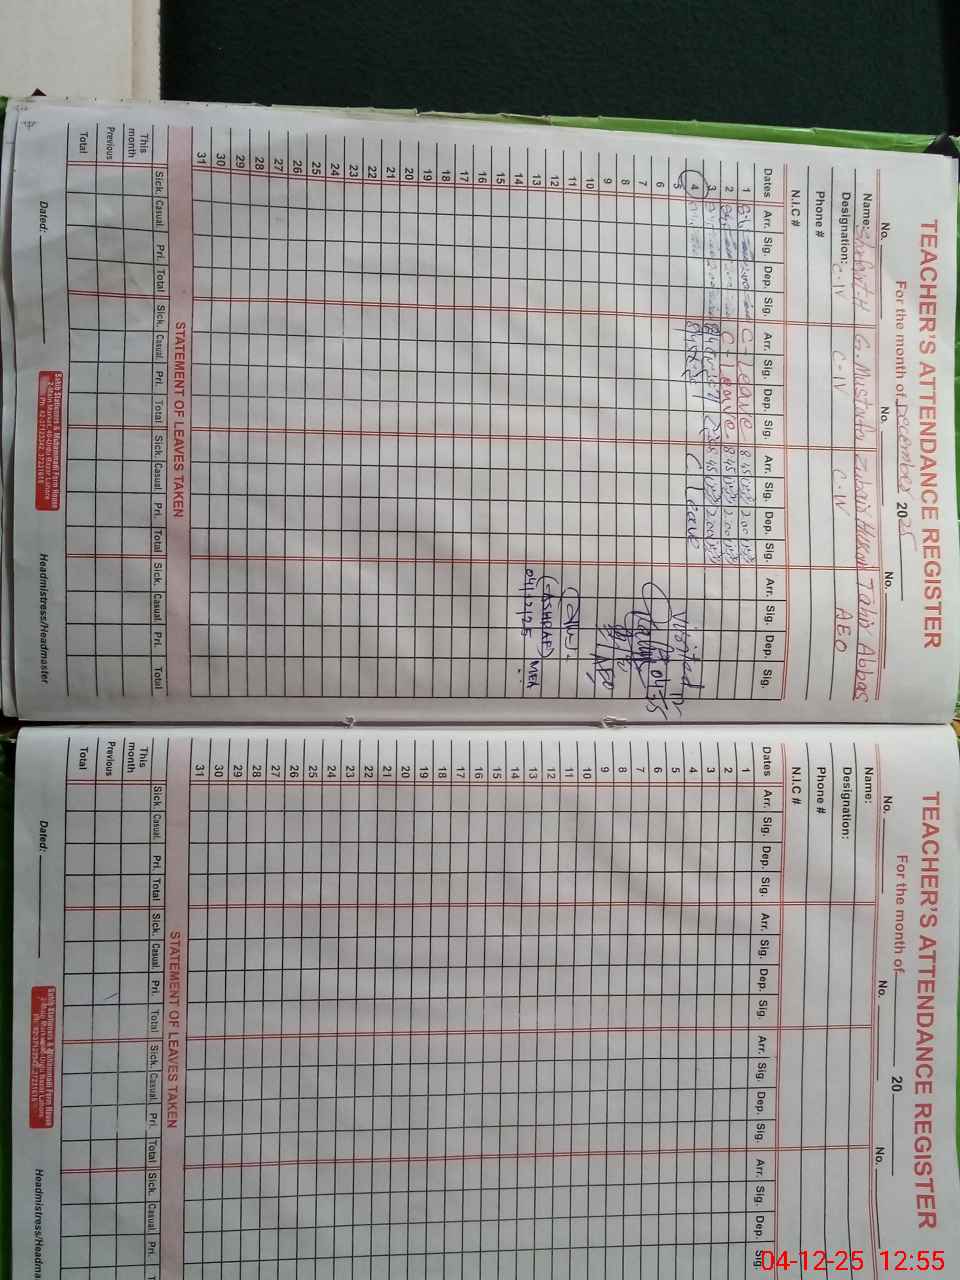 TEACHER'S ATTENDANCE REGISTER
For the month of December 2025
No. No. No.
Name: G. Mustafa Zubair Hassan Tahir Abbas
Designation: C-IV C-IV C-IV AEO
Phone #
N.I.C #
Dates Arr. Sig. Dep. Sig. Arr. Sig. Dep. Sig. Arr. Sig. Dep. Sig. Arr. Sig. Dep. Sig.
1 C-Leave 8 45 2 00
2 C-Leave 8 45 2 00
3 8 45 2 00
4 C Leave
5
6
7
8
9
10
11
12
13
14
15
16
17
18
19
20
21
22
23
24
25
26
27
28
29
30
31
Visited
AEO
(ASHRAF) MEA
04/12/25
STATEMENT OF LEAVES TAKEN
Sick. Casual. Pri. Total Sick. Casual. Pri. Total Sick. Casual. Pri. Total Sick. Casual. Pri. Total
This month
Previous
Total
Dated: Headmistress/Headmaster
Sahib Stationers & Muhammadi Form House
2-Main Market, 40-Urdu Bazar Lahore
TEACHER'S ATTENDANCE REGISTER
For the month of 20
No. No. No.
Name:
Designation:
Phone #
N.I.C #
Dates Arr. Sig. Dep. Sig. Arr. Sig. Dep. Sig. Arr. Sig. Dep. Sig. Arr. Sig. Dep. Sig.
1
2
3
4
5
6
7
8
9
10
11
12
13
14
15
16
17
18
19
20
21
22
23
24
25
26
27
28
29
30
31
STATEMENT OF LEAVES TAKEN
Sick. Casual. Pri. Total Sick. Casual. Pri. Total Sick. Casual. Pri. Total Sick. Casual. Pri.
This month
Previous
Total
Dated: Headmistress/Headma
Sahib Stationers & Muhammadi Form House
04-12-25 12:55